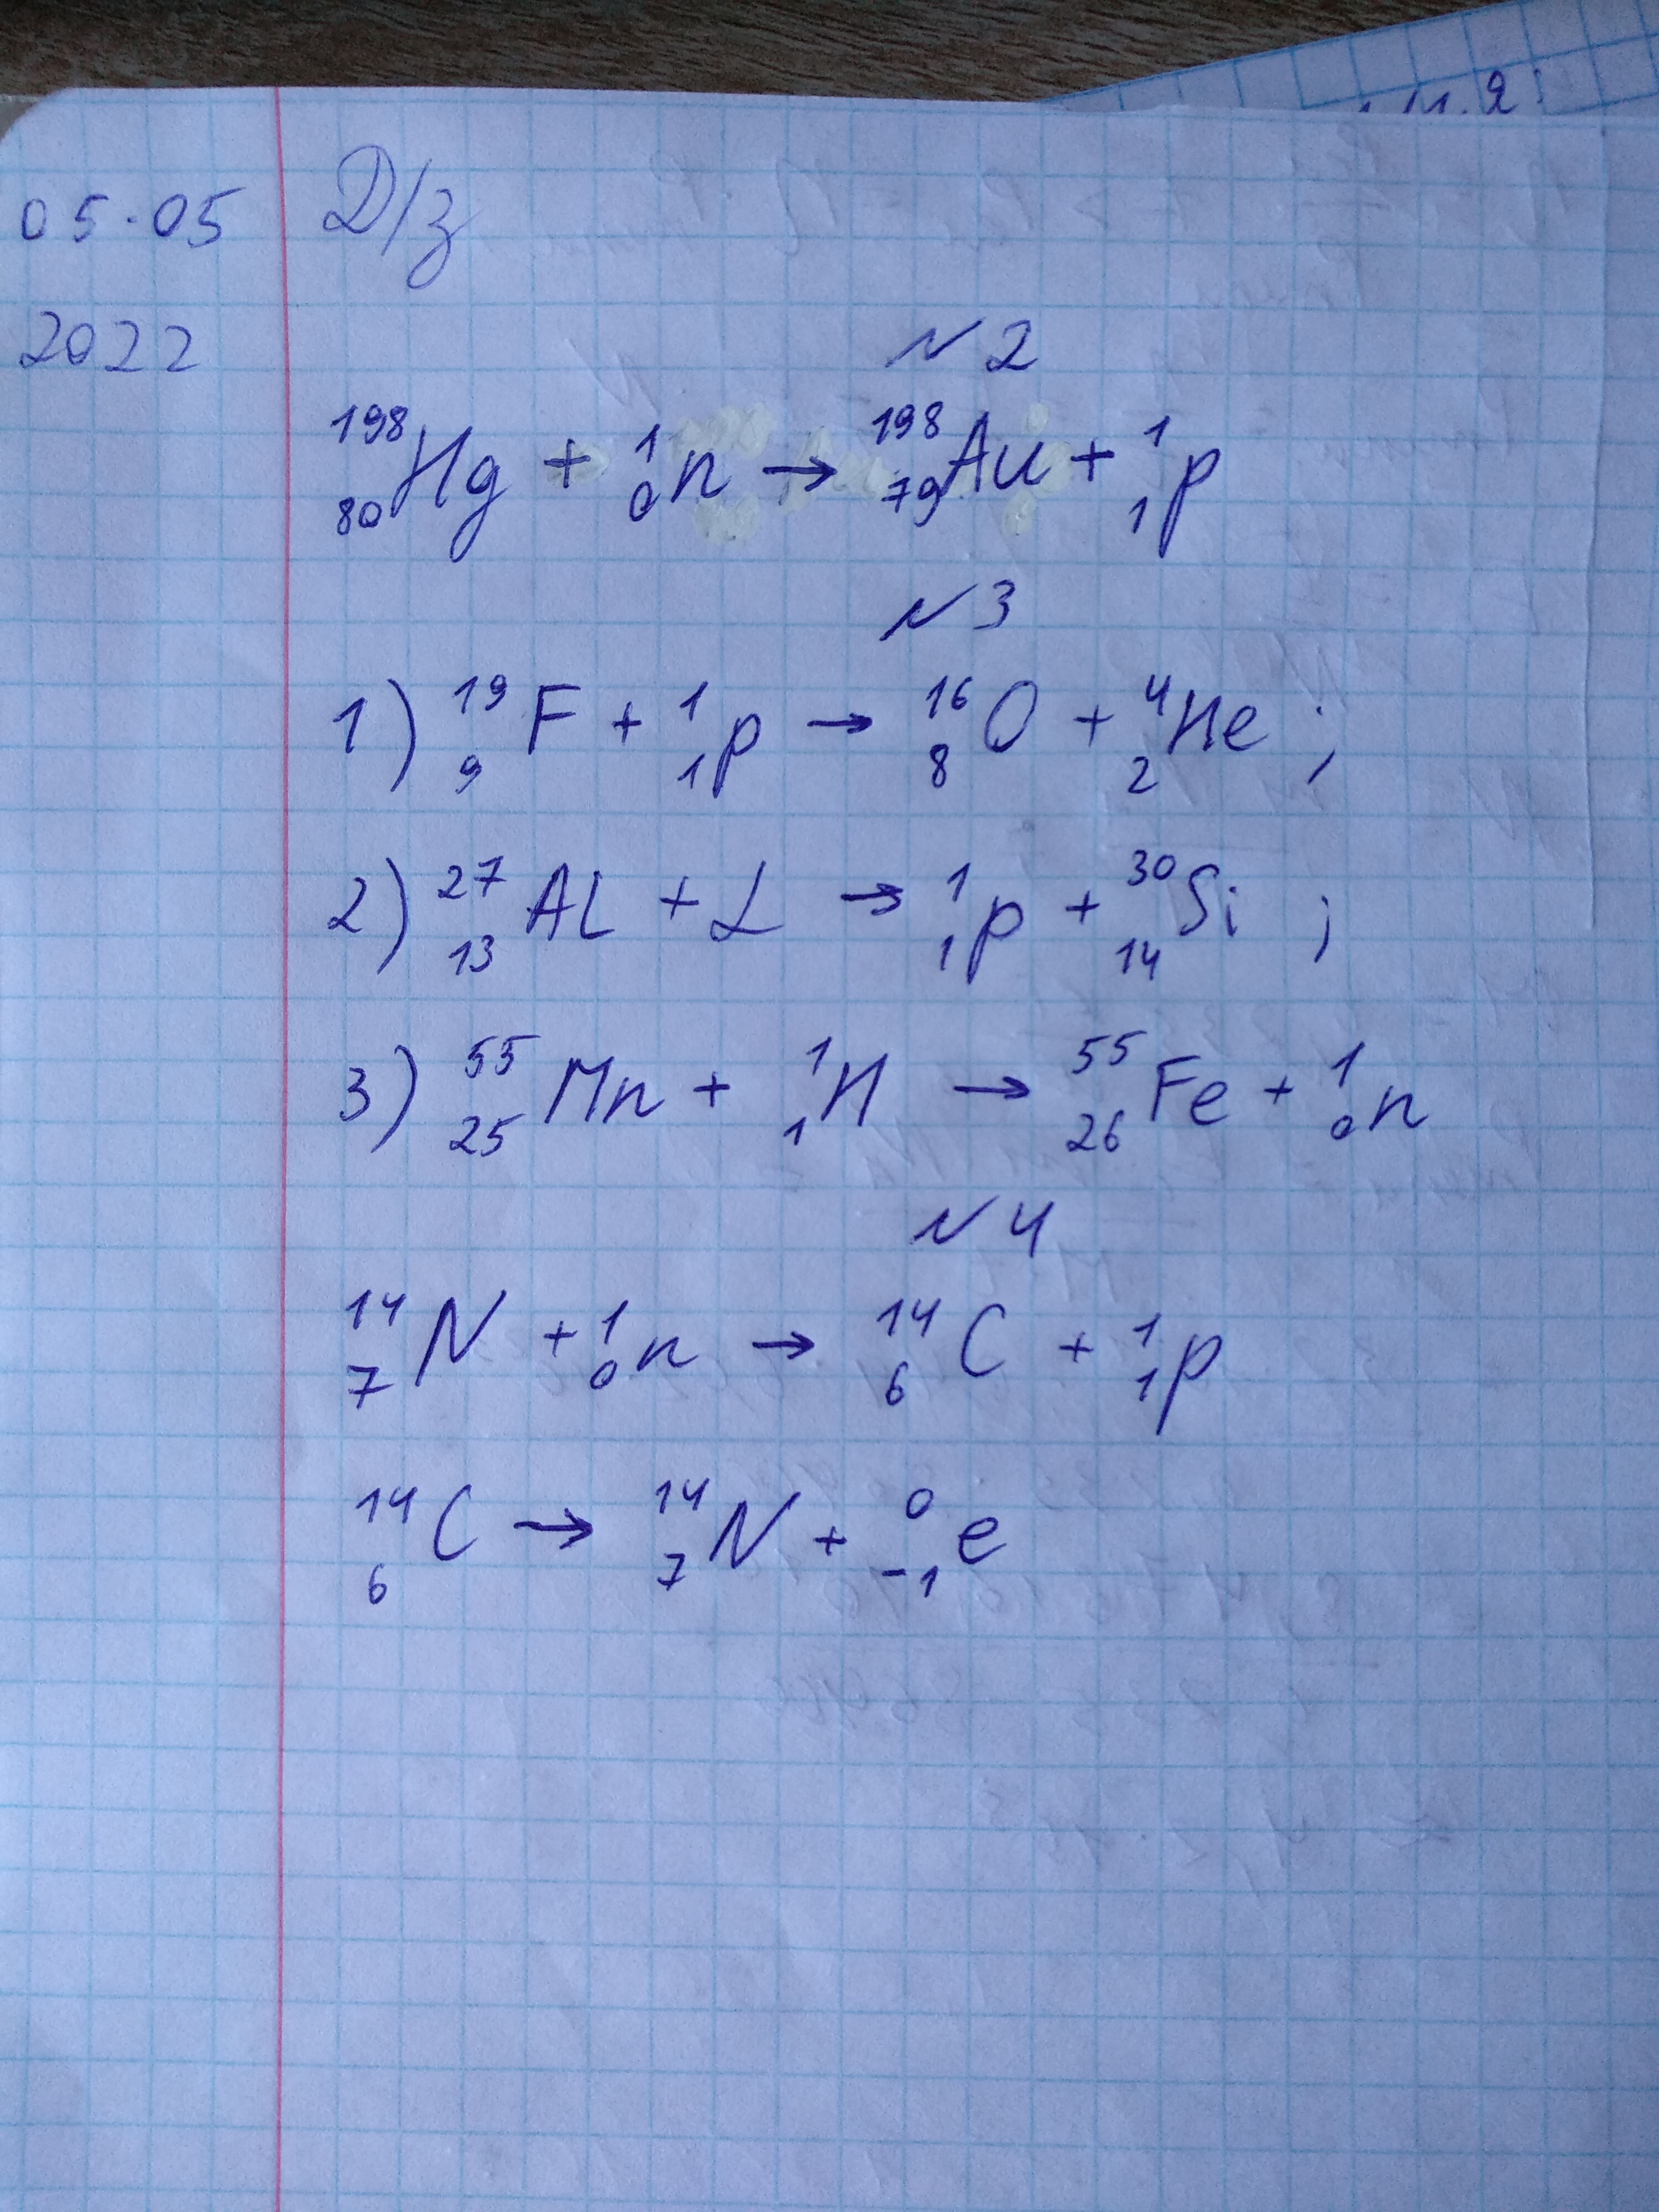 05.05 Д/з
2022
N2
¹⁹⁸₈₀Hg + ¹₀n → ¹⁹⁸₇₉Au + ¹₁p
N3
1) ¹⁹₉F + ¹₁p → ¹⁶₈O + ⁴₂He ;
2) ²⁷₁₃Al + α → ¹₁p + ³⁰₁₄Si ;
3) ⁵⁵₂₅Mn + ¹₁H → ⁵⁵₂₆Fe + ¹₀n
N4
¹⁴₇N + ¹₀n → ¹⁴₆C + ¹₁p
¹⁴₆C → ¹⁴₇N + ⁰₋₁e